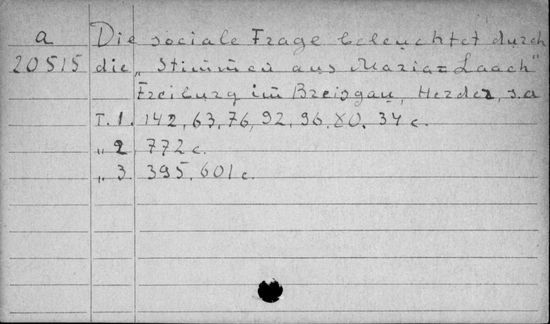 a Die sociale Frage beleuchtet durch
20515 die „Stimmen aus Maria=Laach"
Freiburg im Breisgau, Herder, s.a
T. 1. 142, 63, 76, 92, 96, 80, 34 c.
„ 2 772 c.
„ 3. 395, 601 c.